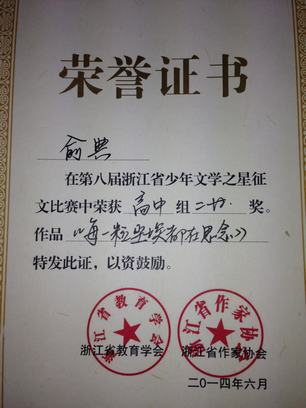 荣誉证书
俞典
在第八届浙江省少年文学之星征
文比赛中荣获 高中 组 二等 奖。
作品 《每一粒尘埃都在思念》
特发此证，以资鼓励。
浙江省教育学会
浙江省作家协会
浙江省教育学会 浙江省作家协会
二〇一四年六月